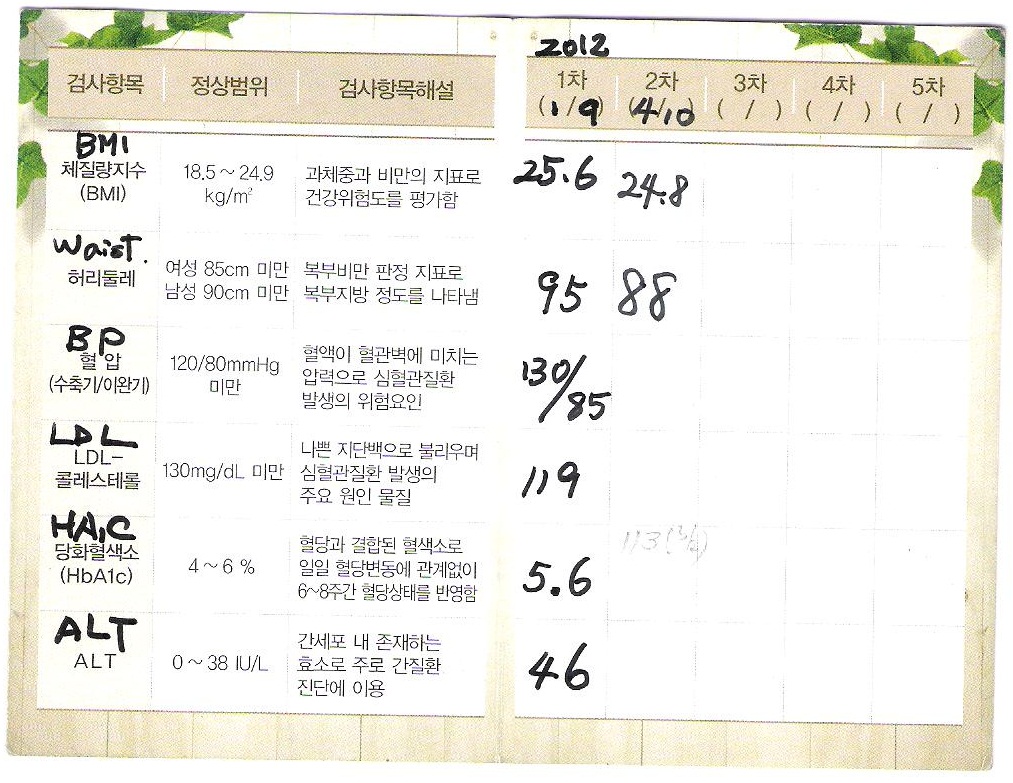 2012
검사항목 정상범위 검사항목해설 1차 2차 3차 4차 5차
(1/9) (4/10) ( / ) ( / ) ( / )
BMI
체질량지수
(BMI)
18.5~24.9
kg/m²
과체중과 비만의 지표로
건강위험도를 평가함
25.6 24.8
Waist.
허리둘레
여성 85cm 미만
남성 90cm 미만
복부비만 판정 지표로
복부지방 정도를 나타냄
95 88
BP
혈 압
(수축기/이완기)
120/80mmHg
미만
혈액이 혈관벽에 미치는
압력으로 심혈관질환
발생의 위험요인
130/
85
LDL
LDL-
콜레스테롤
130mg/dL 미만
나쁜 지단백으로 불리우며
심혈관질환 발생의
주요 원인 물질
119
HA1C
당화혈색소
(HbA1c)
4~6 %
혈당과 결합된 혈색소로
일일 혈당변동에 관계없이
6~8주간 혈당상태를 반영함
5.6
113
ALT
ALT
0~38 IU/L
간세포 내 존재하는
효소로 주로 간질환
진단에 이용
46